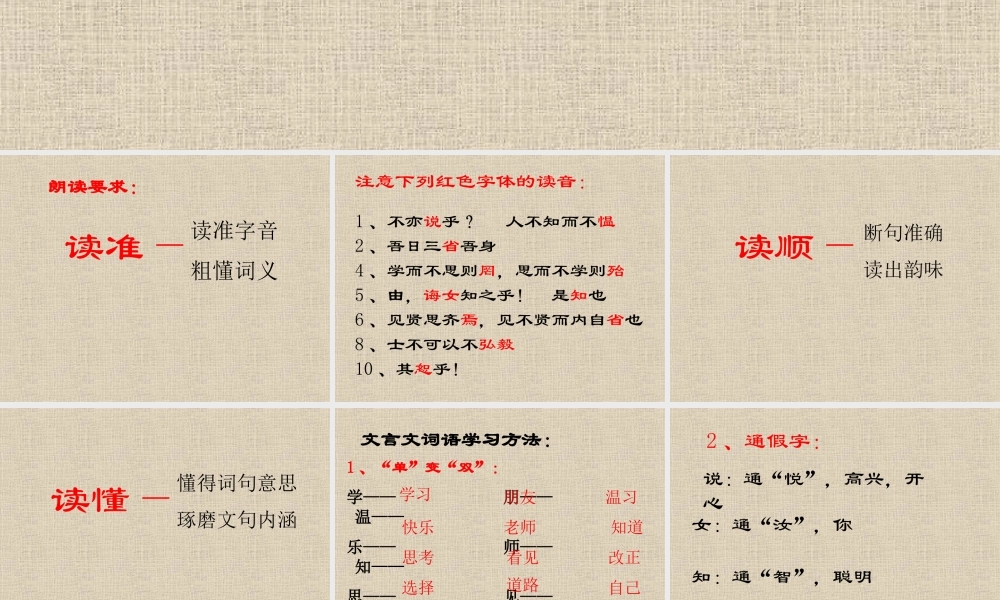 朗读要求：
读准 — 读准字音
粗懂词义
注意下列红色字体的读音：
1 、不亦说乎 ？ 人不知而不愠
2 、吾日三省吾身
4 、学而不思则罔，思而不学则殆
5 、由，诲女知之乎！ 是知也
6 、见贤思齐焉，见不贤而内自省也
8 、士不可以不弘毅
10 、其恕乎！
读顺 — 断句准确
读出韵味
读懂 — 懂得词句意思
琢磨文句内涵
文言文词语学习方法：
1 、“单”变“双”：
学—— 学习 朋—— 友 温习
温——
快乐 老师 知道
乐—— 师——
知—— 思考 看见 改正
思—— 选择 见—— 道路 自己
2 、通假字：
说：通“悦”，高兴，开
心
女：通“汝”，你
知：通“智”，聪明